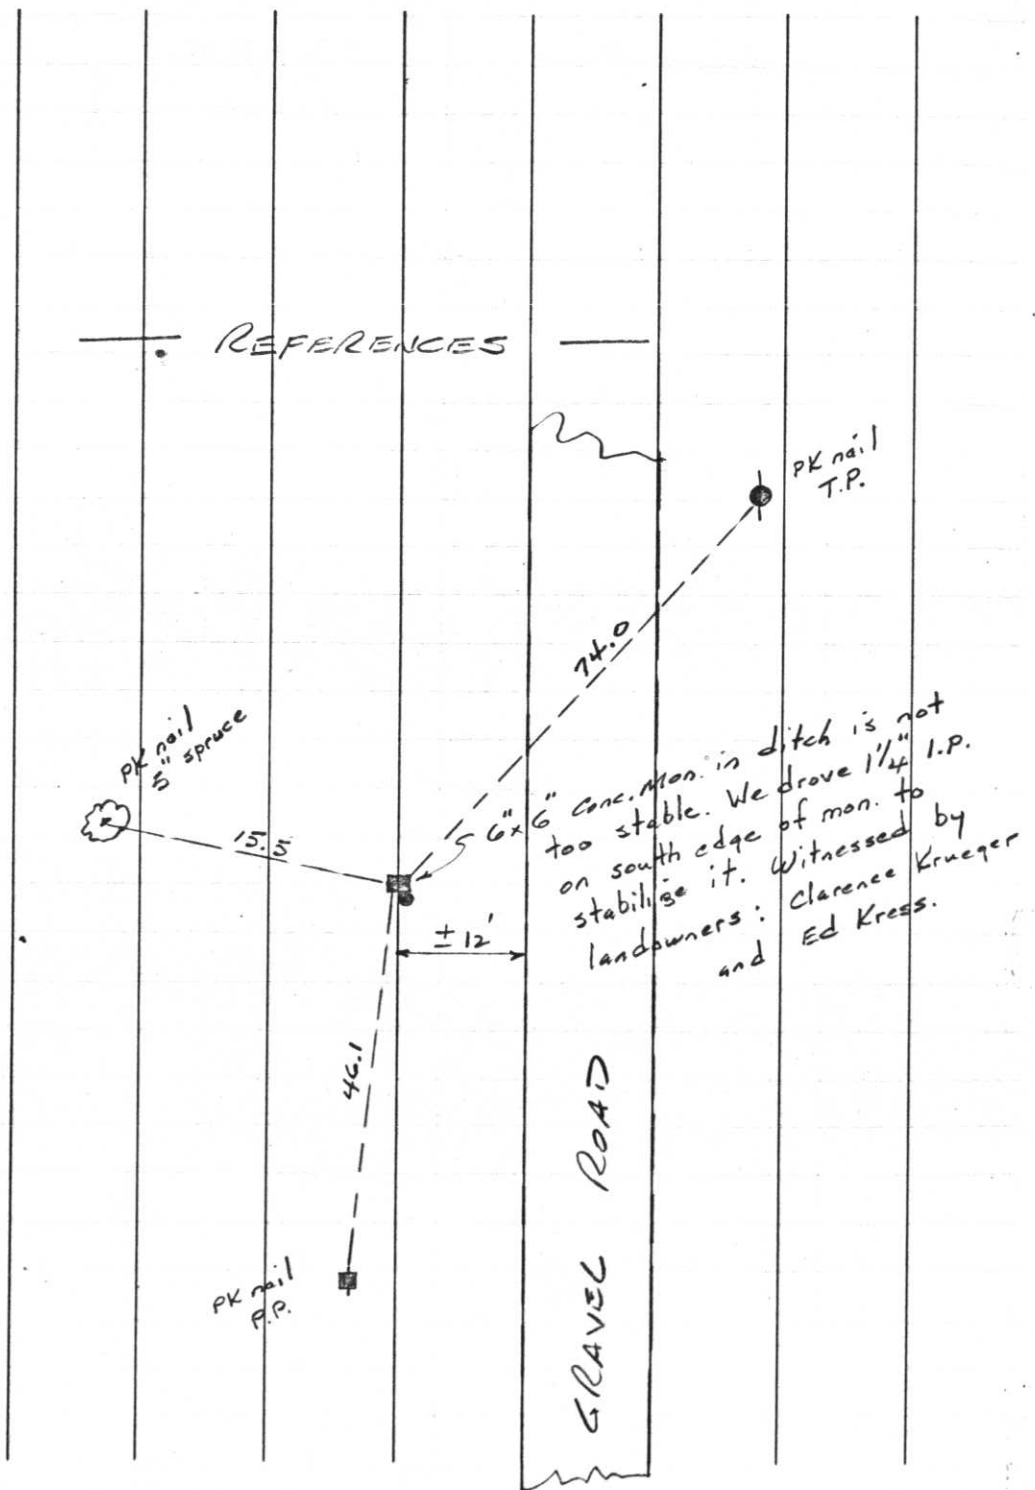 REFERENCES
PK nail
T.P.
74.0
PK nail
5" spruce
15.5
6"x6" conc. Mon. in ditch is not
too stable. We drove 1 1/4" I.P.
on south edge of mon. to
stabilize it. Witnessed by
landowners: Clarence Krueger
and Ed Kress.
± 12'
46.1
PK nail
P.P.
GRAVEL ROAD